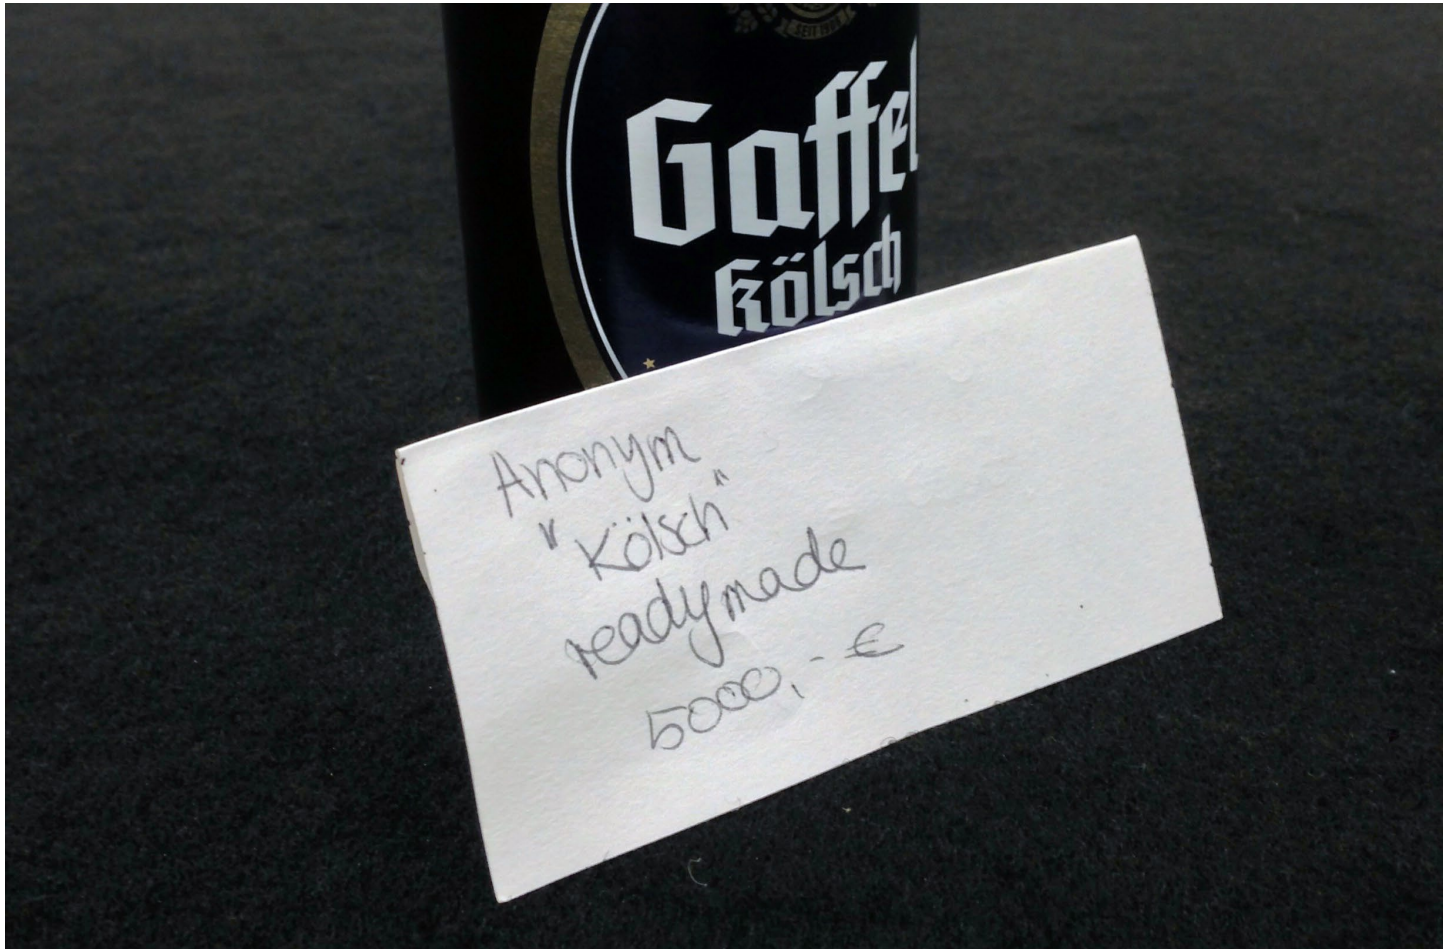 SEIT 1908
Gaffel
Kölsch
Anonym
"Kölsch"
readymade
5000,- €